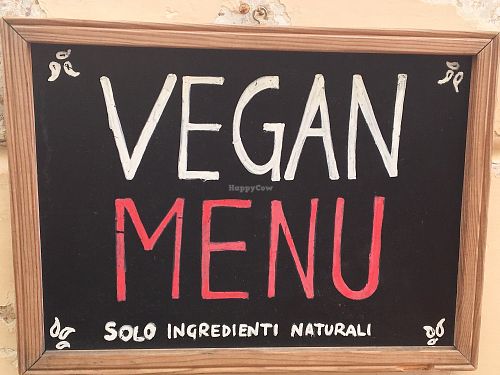 VEGAN
HappyCow
MENU
SOLO INGREDIENTI NATURALI